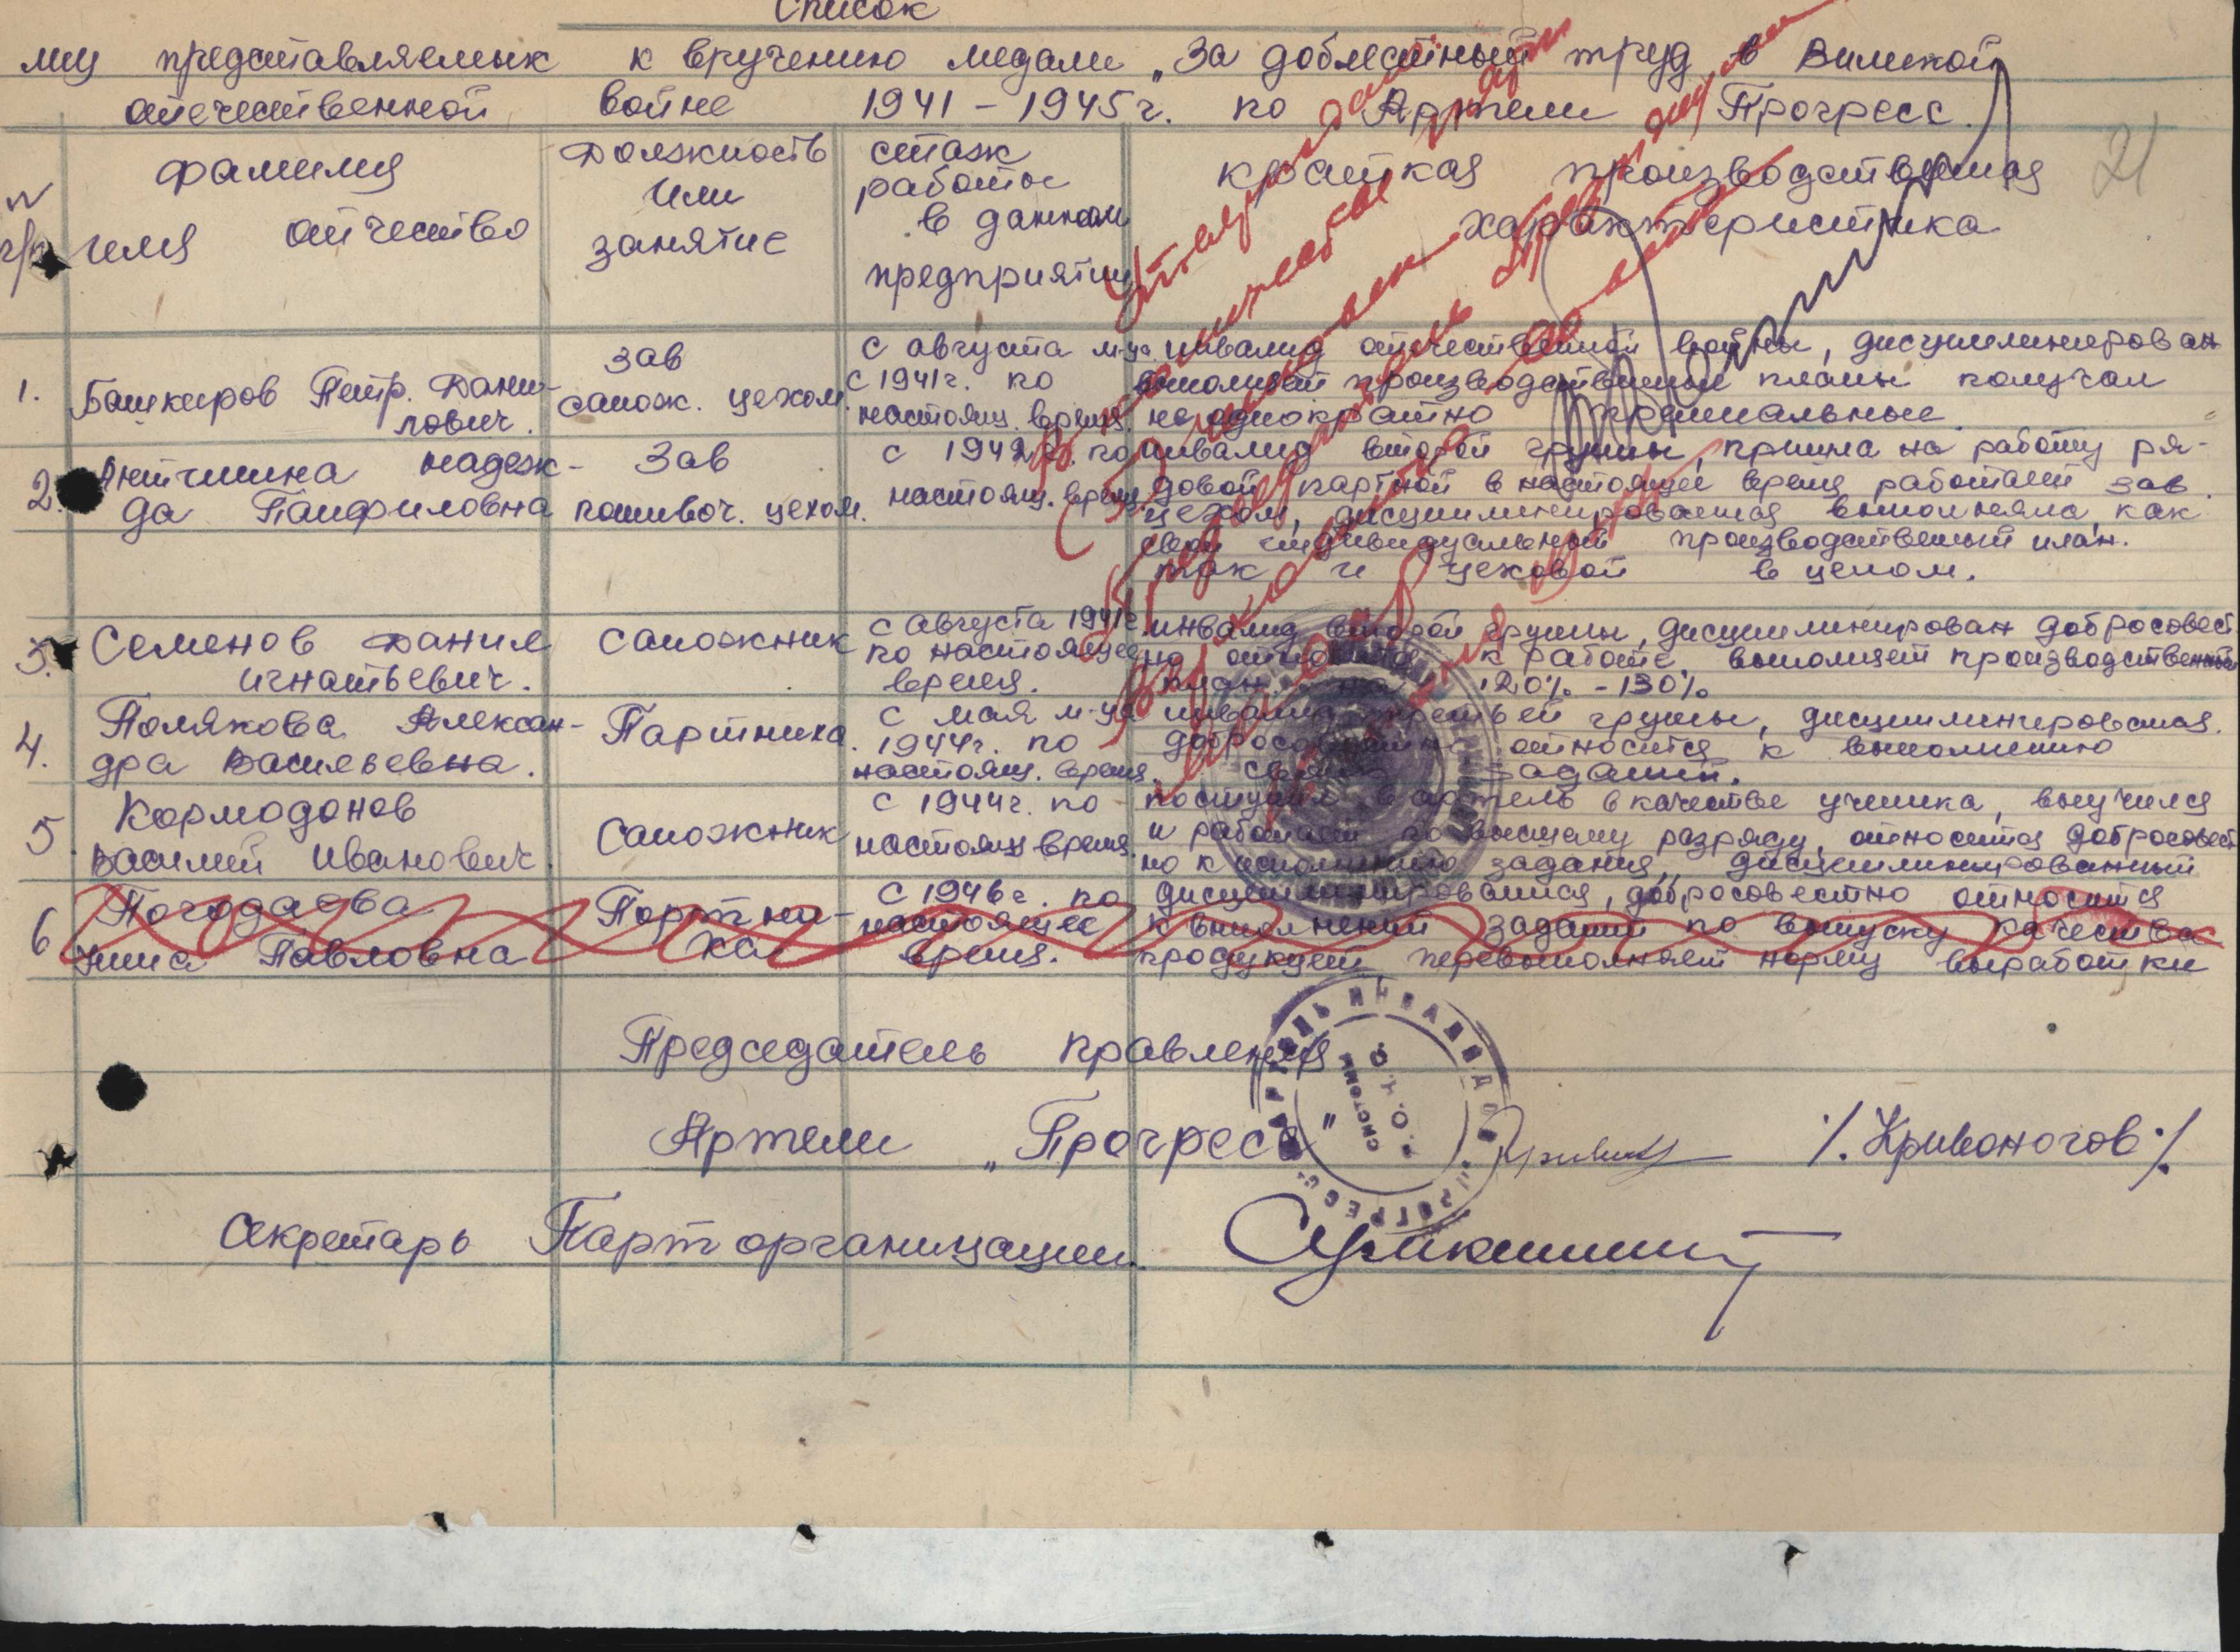 Список
лиц представляемых к вручению медали „За доблестный труд в Великой
отечественной войне 1941 – 1945 г. по Артели Прогресс.
21
N п/п
фамилия
имя отчество
должность
или
занятие
стаж
работы
в данном
предприятии
краткая производственная
характеристика
1. Башкиров Петр. Дани-
лович.
зав
сапож. цехом.
с августа м-ца
с 1941 г. по
настоящ. время.
инвалид отечественной войны, дисциплинирован
выполняет производственные планы получал
неоднократно премиальные
2. Антипина надеж-
да Панфиловна
зав
пошивоч. цехом.
с 1942 г. по
настоящ. время.
инвалид второй группы, принята на работу ря-
довой партной в настоящее время работает зав.
цехом, дисциплинированная выполняла, как
свой индивидуальный производственный план.
так и цеховой в целом.
3. Семенов Данил
игнатьевич.
сапожник
с августа 1941 г.
по настоящее
время.
инвалид второй группы, дисциплинирован добросовест
но относится к работе, выполняет производственный
план на 120% – 130%
4. Полякова Алексан-
дра Васильевна.
Партниха.
с мая м-ца
1944 г. по
настоящ. время.
инвалид третьей группы, дисциплинированая.
добросовестно относится к выполнению
своих заданий.
5. Кормодонов
василий иванович.
Сапожник
с 1944 г. по
настоящ время.
поступил в артель в качестве ученика, выучился
и работает по высшему разряду, относится добросовест
но к исполнению задания, дисциплинированный
6 Погодаева
нина Павловна
Портни-
ха
с 1946 г. по
настоящее
время.
дисциплинированная, добросовестно относится
к выполнений заданий по выпуску качества
продукции, перевыполняет норму выработки
Председатель правления
Артели „Прогресс" /. Кривоногов ./
АРТЕЛЬ ИНВАЛИДОВ „ПРОГРЕСС"
системы
Секретарь Парторганизации.